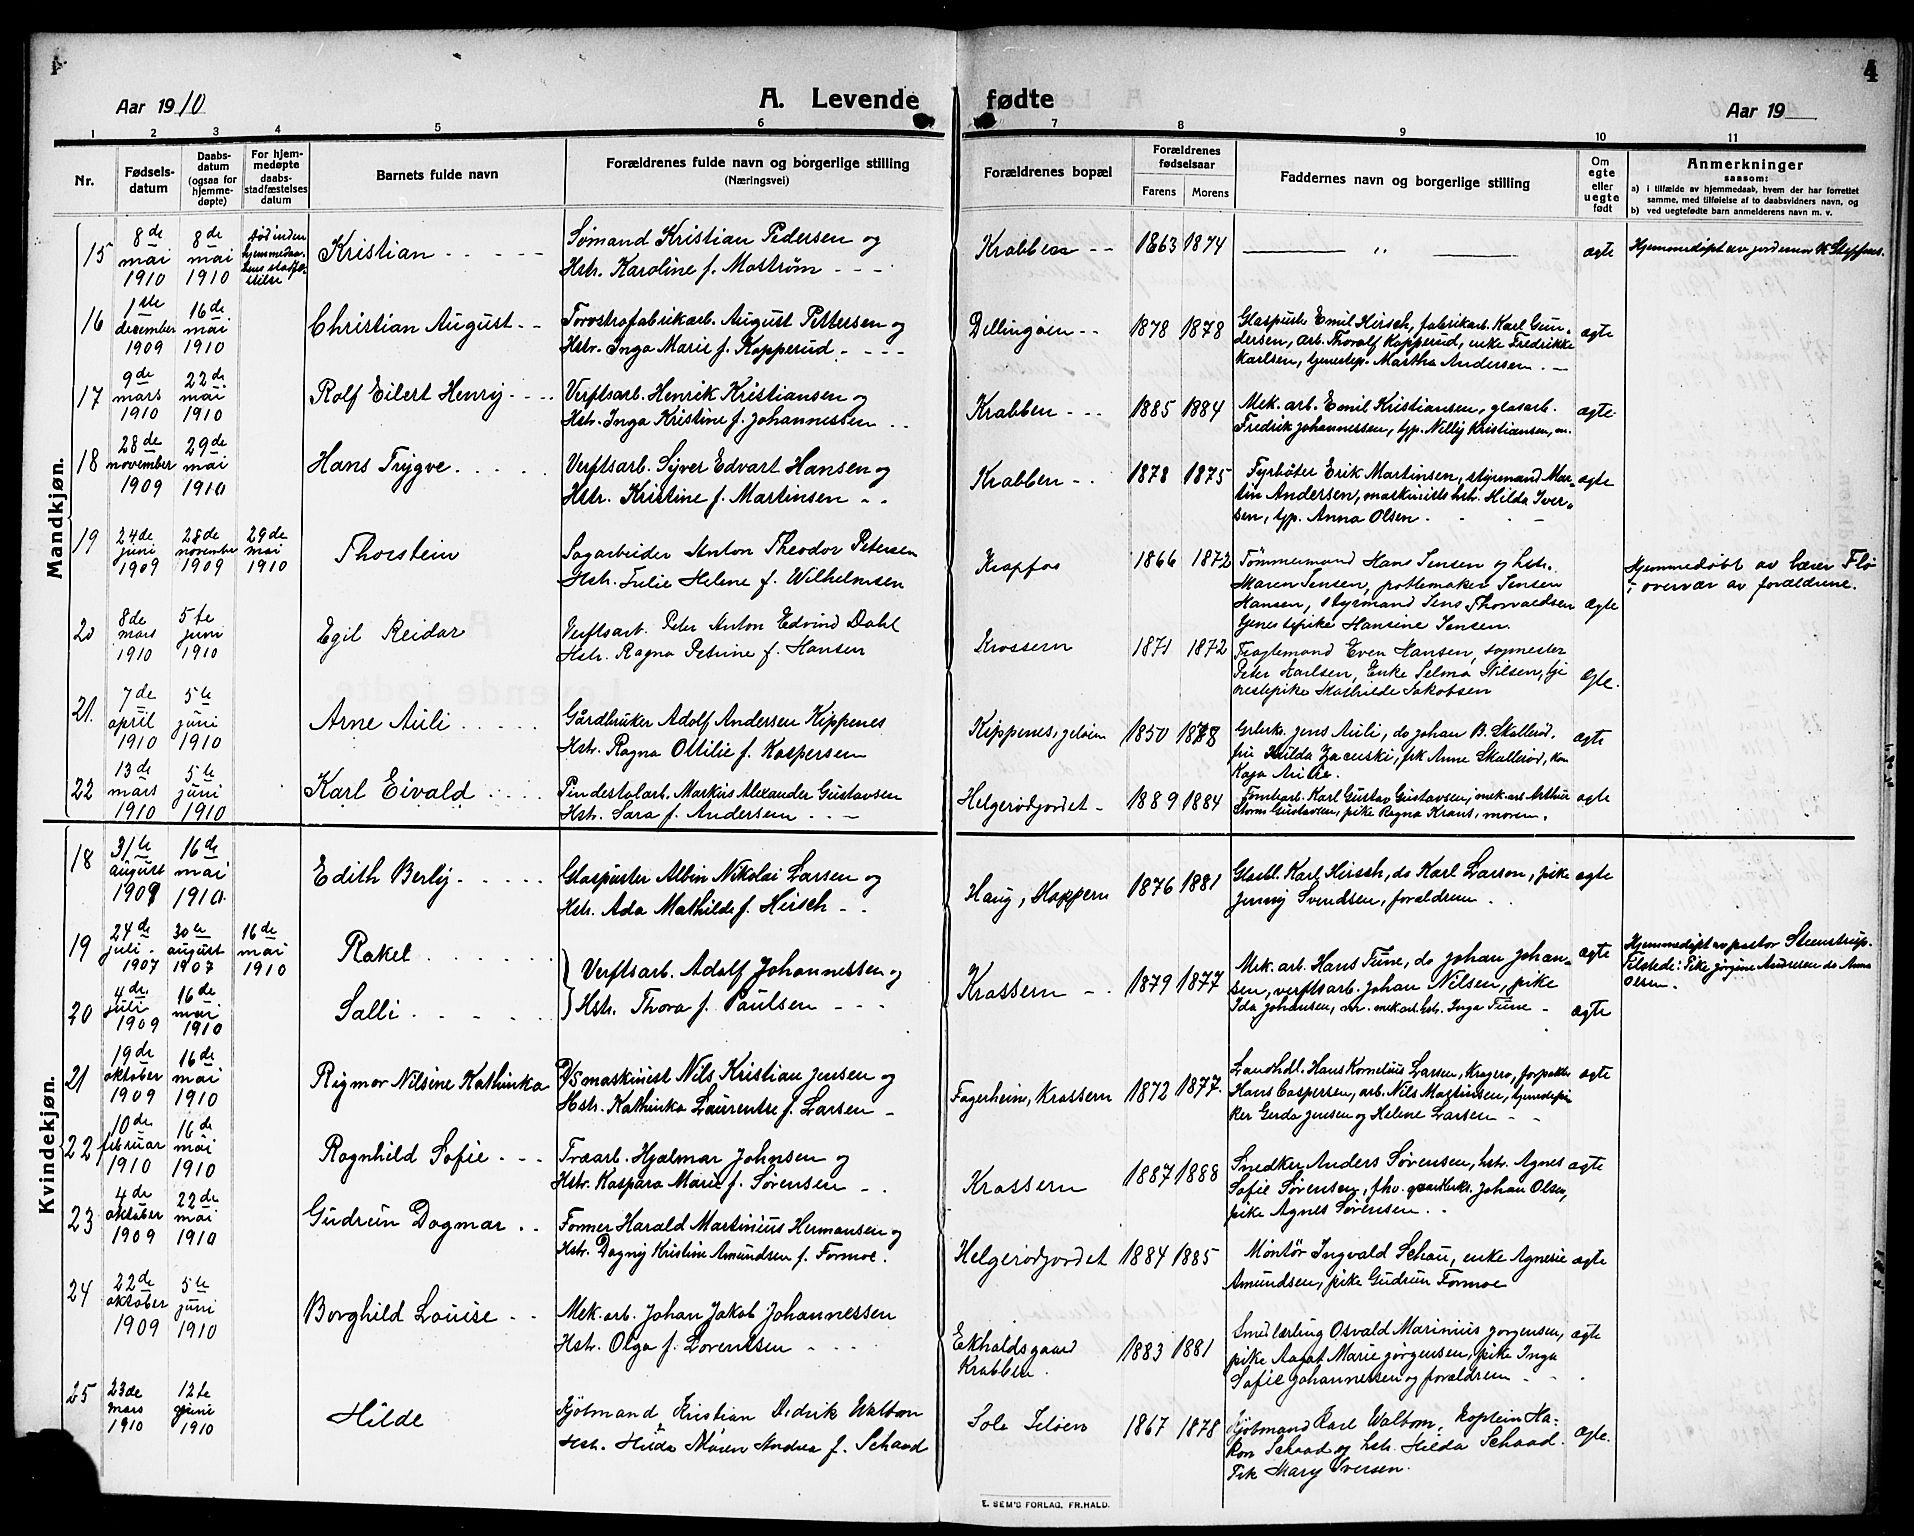 4
Aar 1910
A. Levende fødte
Aar 19
1 2 3 4 5 6 7 8 9 10 11
Nr.
Fødsels-
datum
Daabs-
datum
(ogsaa for
hjemme-
døpte)
For hjem-
medøpte
daabs-
stadfæstelses
datum
Barnets fulde navn
Forældrenes fulde navn og borgerlige stilling
(Næringsvei)
Forældrenes bopæl
Forældrenes
fødselsaar
Farens Morens
Faddernes navn og borgerlige stilling
Om
egte
eller
uegte
født
Anmerkninger
saasom:
a) i tilfælde av hjemmedaab, hvem der har forrettet
samme, med tilføielse af to daabsvidners navn, og
b) ved uegtefødte barn anmelderens navn m. v.
Mandkjøn.
15
8de
mai
1910
8de
mai
1910
død inden
hjemmedaa-
bens stadfæ-
stelse
Kristian
Sømand Kristian Pedersen og
Hstr. Karoline f. Mostrøm
Krabben
1863 1874
"
egte
Hjemmedøpt av jordemor K. Steffens.
16
1ste
december
1909
16de
mai
1910
Christian August
Torvstrøfabrikarb. August Pettersen og
Hstr. Inga Marie f. Kopperud
Dillingøen
1878 1878
Glaspust. Emil Hirsch, fabrikarb. Karl Gun-
dersen, arb. Thoralf Kopperud, enke Fredrikke
Karlsen, tjenestep. Martha Andersen.
egte
17
9de
mars
1910
22de
mai
1910
Rolf Eilert Henry
Verftsarb. Henrik Kristiansen og
Hstr. Inga Kristine f. Johannessen
Krabben
1885 1884
Mek. arb. Emil Kristiansen, glasarb.
Fredrik Johannessen, tjp. Nelly Kristiansen, m.
egte
18
28de
november
1909
29de
mai
1910
Hans Trygve
Verftsarb. Syver Edvart Hansen og
Hstr. Kristine f. Martinsen
Krabben
1878 1875
Fyrbøter Erik Martinsen, styrmand Mar-
tin Andersen, maskinists hst. Hilda Iver-
sen, tjp. Anna Olsen.
egte
19
24de
juni
1909
28de
november
1909
29de
mai
1910
Thorstein
Sagarbeider Anton Theodor Petersen
Hstr. Julie Helene f. Wilhelmsen
Krapfos
1866 1872
Tømmermand Hans Jensen og hstr.
Maren Jensen, pottemaker Jensen
Hansen, styrmand Jens Thorvaldsen
tjenestepike Hansine Jensen.
egte
Hjemmedøbt av lærer Flø
i overvær av forældrene.
20
8de
mars
1910
5te
juni
1910
Egil Reidar
Verftsarb. Peter Anton Edvind Dahl
Hstr. Ragna Petrine f. Hansen
Krossern
1871 1872
Fragtemand Even Hansen, sagmester
Peter Karlsen, Enke Selma Nilsen, tje
nestepike Mathilde Jakobsen
egte.
21.
7de
april
1910
5te
juni
1910
Arne Auli
Gårdbruker Adolf Andersen Kippenes
Hstr. Ragna Ottilie f. Kaspersen
Kippenes, jeløien
1850 1878
Grbrk. Jens Auli, do Johan B. Skallerød,
fru Hilda Zacuski, frk Anne Skallerød,
Kaja Aulie.
egte
22
13de
mars
1910
5te
juni
1910
Karl Eivald
Pindestolarb. Markus Alexander Gustavsen
Hstr. Sara f. Andersen
Helgerødjordet
1889 1884
Tomtearb. Karl Gustav Gustavsen, mek. arb. Arthur
Storm Gustavsen, pike Ragna Krans, moren.
egte
Kvindekjøn.
18
31te
august
1909
16de
mai
1910
Edith Berly
Glaspuster Albin Nikolai Larsen og
Hstr. Ada Mathilde f. Hirsch
Haug, Moppern
1876 1881
Glasbl. Karl Hirsch, do Karl Larson, pike
Jenny Svendsen, forældrene
egte
19
24de
juli
1907
30te
august
1907
16de
mai
1910
Rakel
Verftsarb. Adolf Johannessen og
Hstr. Thora f. Paulsen
Krossern
1879 1877
Mek. arb. Hans Tune, do Johan Johan-
sen, verftsarb. Johan Nilsen, pike
Ida Johansen, mek arb. hstr. Inga Tune
egte
Hjemmedøpt av pastor Steenstrup.
Tilstede: Pike Jørgine Andresen do Anna
Olsen.
20
4de
juli
1909
16de
mai
1910
Salli
egte
21
19de
oktober
1909
16de
mai
1910
Rigmor Nilsine Kathinka
D/S maskinist Nils Kristian Jensen og
Hstr. Kathinka Laurentse f. Larsen
Fagerheim, Krossern
1872 1877.
Landhdl. Hans Kornelius Larsen, Kragerø, forpakter
Hans Caspersen, arb. Nils Martinsen, tjenestepi-
ker Gerda Jensen og Helene Larsen
egte
22
10de
februar
1910
16de
mai
1910
Ragnhild Sofie
Træarb. Hjalmar Johnsen og
Hstr. Kaspara Marie f. Sørensen
Krossern
1887 1888
Snedker Anders Sørensen, hstr. Agnes
Sofie Sørensen, fhv. gaardbrk. Johan Olsen,
pike Agnes Sørensen.
egte
23
4de
oktober
1909
22de
mai
1910
Gudrun Dagmar
Former Harald Martinius Hermansen og
Hstr. Dagny Kristine Amundsen f. Formoe.
Helgerødjordet
1884 1885
Montør Ingvald Schau, enke Agnesie
Amundsen, pike Gudrun Formoe
egte
24
22de
oktober
1909
5te
juni
1910
Borghild Louise
Mek. arb. Johan Jakob Johannessen
Hstr. Olga f. Lorentsen
Ekholdsgaard
Krabben.
1883 1881
Smedlærling Osvald Marinius Jørgensen,
pike Aagot Marie Jørgensen, pike Inga
Sofie Johannessen og forældrene
egte
25
23de
mars
1910
12te
juni
1910
Hilde
Kjøbmand Kristian Didrik Walbom
Hstr. Hilda Maren Andrea f. Schaad
Sole Jeløen
1867 1878
Kjøbmand Karl Walbom, Kaptein Ha-
kon Schaad og hstr. Hilda Schaad.
Frk Mary Iversen.
egte.
E. SEM'S FORLAG, FR.HALD.